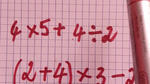 4×5+4÷2
(2+4)×3-2